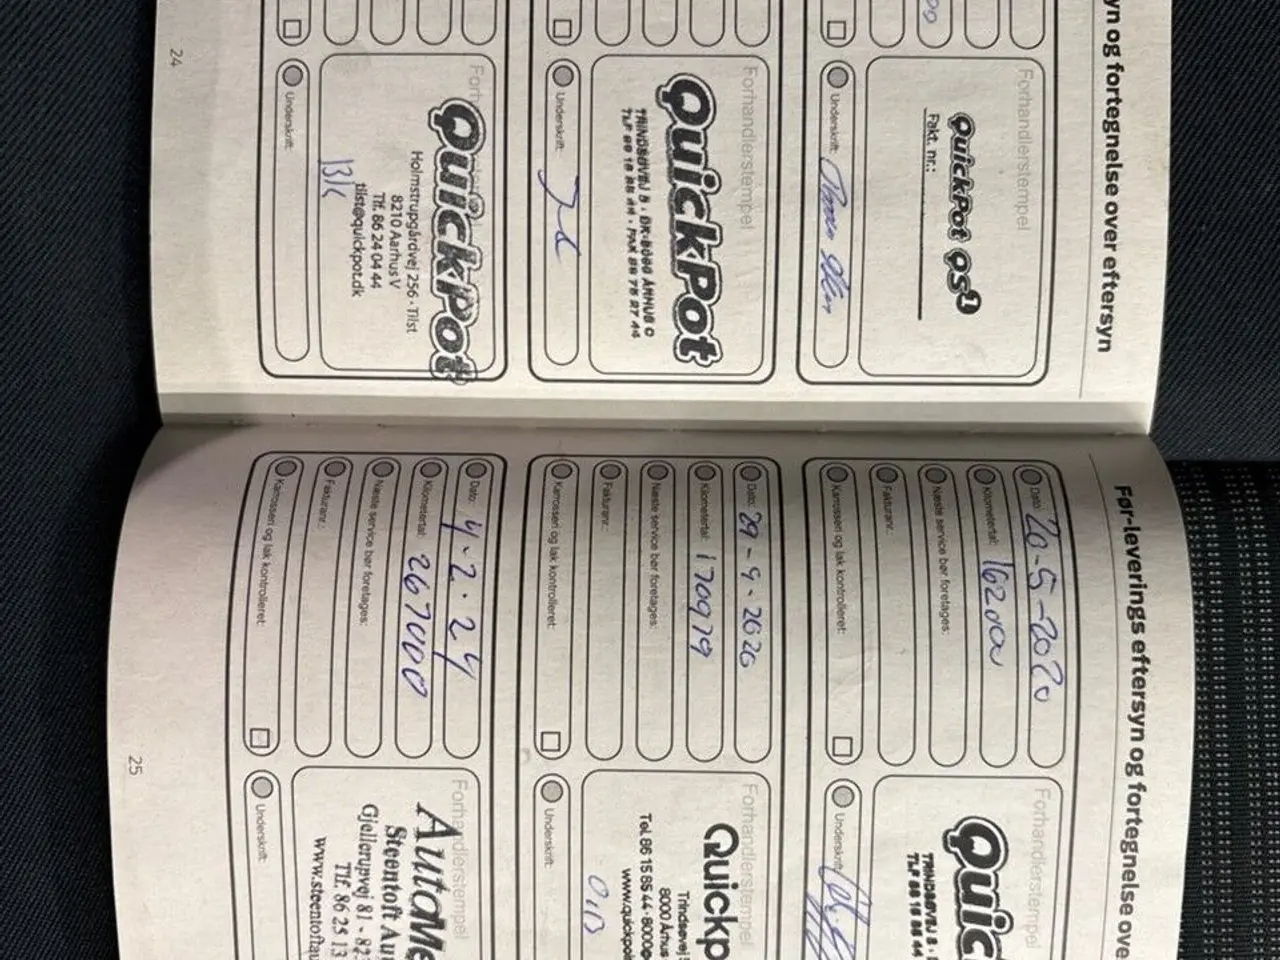 yn og fortegnelse over eftersyn
Forhandlerstempel
QuickPot QS1
Fakt. nr.:
Underskrift:
Forhandlerstempel
QuickPot
TRINDSØVEJ 5 · DK-8000 ÅRHUS C
TLF 86 15 85 44 · FAX 86 75 27 44
Underskrift:
Forh
QuickPot
Holmstrupgårdvej 256 · Tilst
8210 Aarhus V
Tlf. 86 24 04 44
tilst@quickpot.dk
Underskrift:
24
Før-leverings eftersyn og fortegnelse ove
Dato: 20-5-2020
Kilometertal: 162000
Næste service bør foretages:
Fakturanr.:
Karrosseri og lak kontrolleret:
Forhandlerstempel
Quic
TRINDSØVEJ 5 ·
TLF 86 15 85 44
Underskrift:
Dato: 29-9-2020
Kilometertal: 170979
Næste service bør foretages:
Fakturanr.:
Karrosseri og lak kontrolleret:
Forhandlerstempel
Quickp
Trindsøvej
8000 Århus
Tel. 86 15 85 44 ·
www.quickpo
Underskrift:
Dato: 4.2.24
Kilometertal: 267000
Næste service bør foretages:
Fakturanr.:
Karrosseri og lak kontrolleret:
Forhandlerstempel
AutoMe
Steentoft Au
Gjellerupvej 81 - 82
Tlf. 86 25 13
www.steentoftau
Underskrift:
25